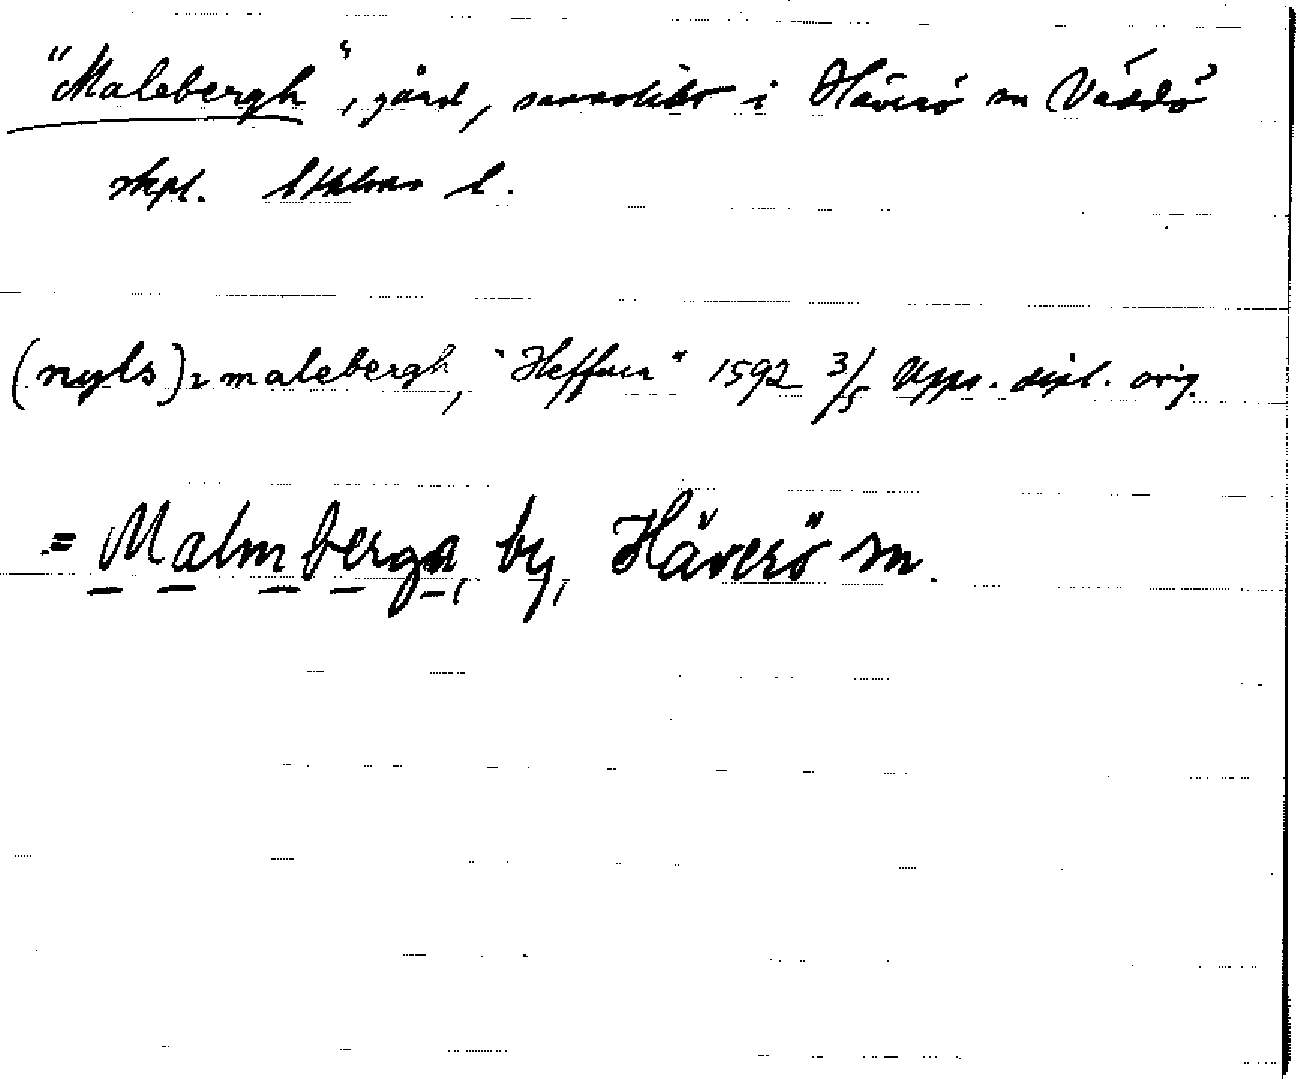 "Malebergh", gård, sannolikt i Häverö sn Väddö
skpl. Sthlms l.
(nyls) malebergh, "Heffuer" 1592 3/5 Upps. dipl. orig.
= Malmberga, by, Häverö sn.